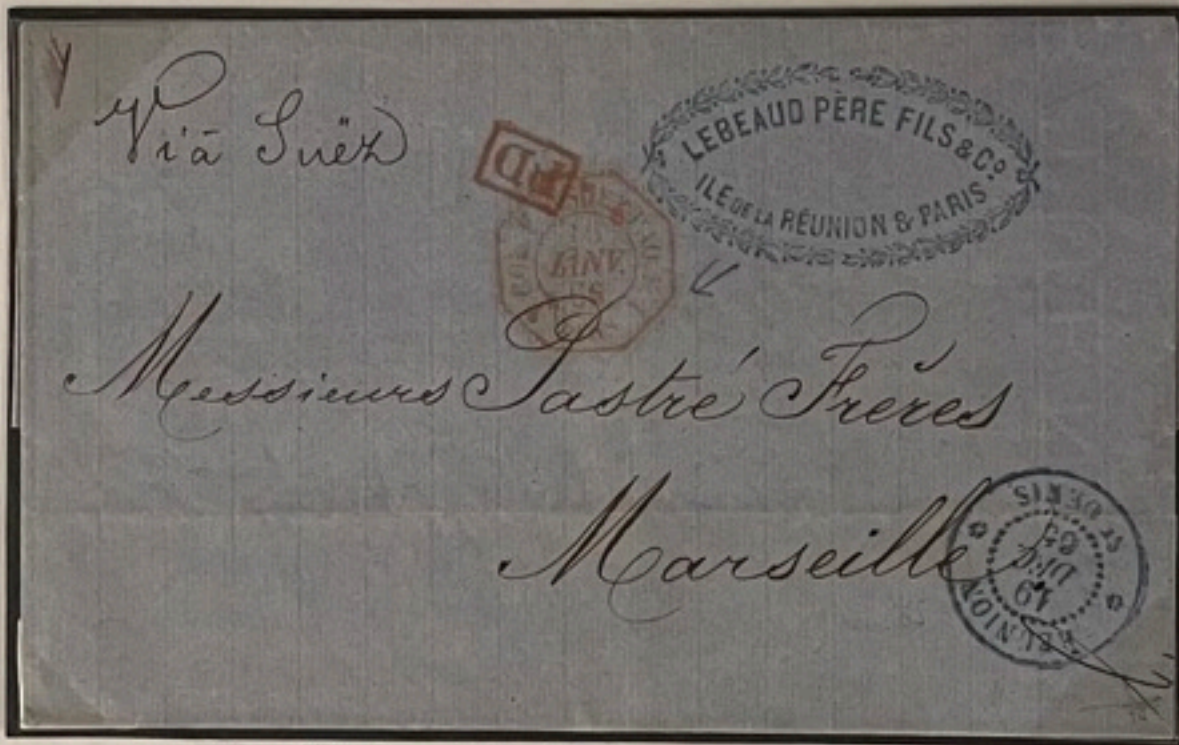 Viā Suëz
LEBEAUD PÈRE FILS & Cº
ILE DE LA RÉUNION & PARIS
PD
JANV.
Messieurs Pastré Frères
Marseille
RÉUNION
19
DEC
ST DENIS